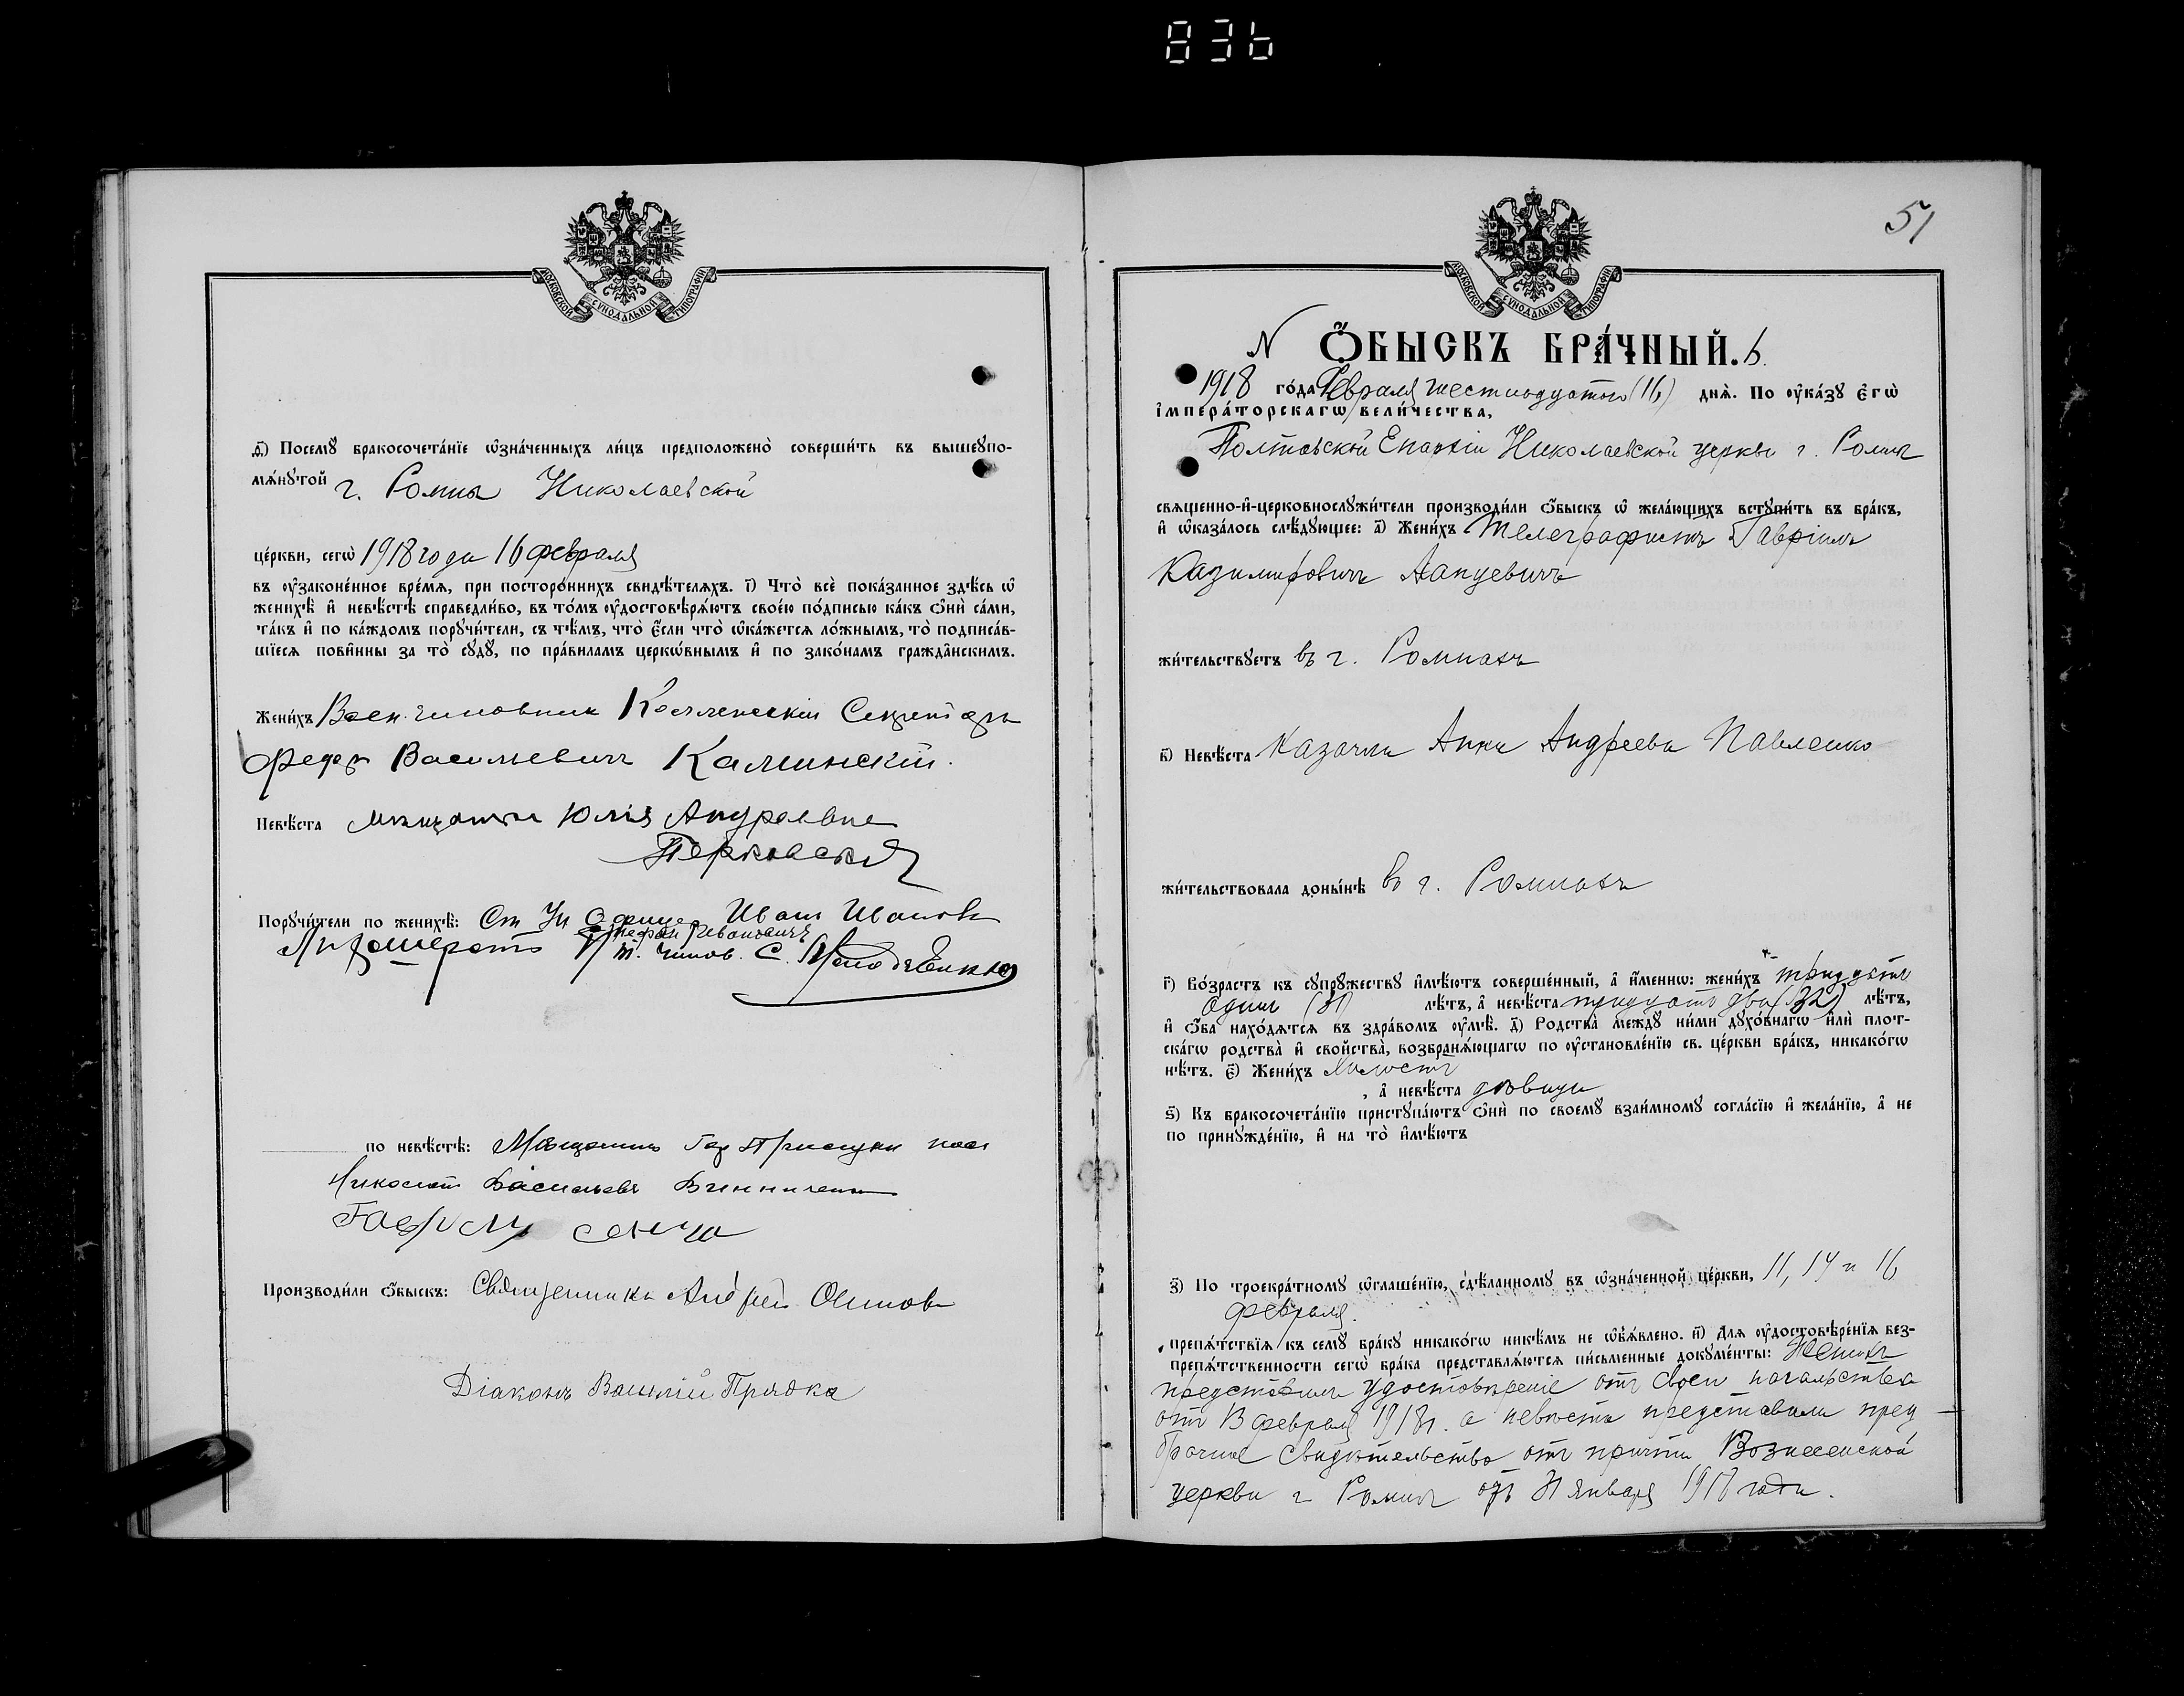 836
МОСКОВСКОЙ СѴНОДАЛЬНОЙ ТИПОГРАФІИ
ѳ҃) Посемꙋ̀ бракосочета́нїе ѡ҆зна́ченныхъ ли́цъ предположено̀ соверши́ть въ вышеꙋпо-
мѧ́нꙋтой г. Ромна Николаевской
це́ркви, сегѡ̀ 1918 года 16 февраля
въ ᲂу҆законе́нное вре́мѧ, при посторо́ннихъ свидѣ́телѧхъ. і҃) Что̀ всѐ пока́занное здѣ́сь ѡ҆
женихѣ̀ и҆ невѣ́стѣ справедли́во, въ то́мъ ᲂу҆достовѣрѧ́ютъ свое́ю по́дписью ка́къ ѻ҆нѝ са́ми,
та́къ и҆ по ка́ждомъ порꙋчи́тели, съ тѣ́мъ, что̀ є҆́сли что̀ ѡ҆ка́жетсѧ ло́жнымъ, то̀ подписа́в-
шїесѧ пови́нны за то̀ сꙋдꙋ̀, по пра́виламъ церкѡ́внымъ и҆ по зако́намъ гражда́нскимъ.
Жени́хъ Воен. чиновник Коллежскій Секретарь
Федор Васильевич Каминскій.
Невѣ́ста мѣщанка Юлія Андреевна
Терковская
Порꙋчи́тели по женихѣ̀: Ст Ун Офицер Иван Иванов
по невѣ́стѣ: Мѣщанин
Николай Васильевъ
Гаврилъ
Производи́ли ѻ҆́быскъ: Священникъ Андрей Осипов
Діаконъ Василій Прядка
51
МОСКОВСКОЙ СѴНОДАЛЬНОЙ ТИПОГРАФІИ
N Ѻ҆́БЫСКЪ БРА́ЧНЫЙ. 6.
1918 го́да Февраля шестнадцатого (16) днѧ̀. По ᲂу҆ка́зꙋ є҆гѡ̀
і҆мпера́торскагѡ вели́чества,
Полтавской Епархіи Николаевской церкви г. Ромна
свѧщенно-и҆-церковнослꙋжи́тели производи́ли ѻ҆́быскъ ѡ҆ жела́ющихъ встꙋпи́ть въ бра́къ,
и҆ ѡ҆каза́лось слѣ́дꙋющее: а҃) Жени́хъ Телеграфистъ Гавріилъ
Казимировичъ Лапцевичъ
жи́тельствꙋетъ въ г. Ромнахъ
в҃) Невѣ́ста Казачка Анна Андреева Павленко
жи́тельствовала доны́нѣ въ г. Ромнахъ
г҃) Во́зрастъ къ сꙋпрꙋ́жествꙋ и҆мѣ́ютъ соверше́нный, а҆ и҆́меннѡ: жени́хъ тридцать
одинъ (31) лѣ́тъ, а҆ невѣ́ста тридцать два (32) лѣ́тъ,
и҆ ѻ҆́ба нахо́дѧтсѧ въ здра́вомъ ᲂу҆мѣ̀. д҃) Родства̀ междꙋ̀ ни́ми дꙋхо́внагѡ и҆лѝ плот-
ска́гѡ родства̀ и҆ свойства̀, возбранѧ́ющагѡ по ᲂу҆становле́нїю св. це́ркви бра́къ, никако́гѡ
нѣ́тъ. є҃) Жени́хъ холостъ
, а҆ невѣ́ста дѣвица
ѕ҃) Къ бракосочета́нїю пристꙋпа́ютъ ѻ҆нѝ по своемꙋ̀ взаи́мномꙋ согла́сїю и҆ жела́нїю, а҆ не
по принꙋжде́нїю, и҆ на то̀ и҆мѣ́ютъ
з҃) По троекра́тномꙋ ѡ҆глаше́нїю, сдѣ́ланномꙋ въ ѡ҆зна́ченной це́ркви, 11, 14 и 16
февраля.
препѧ́тствїѧ къ семꙋ̀ бра́кꙋ никако́гѡ никѣ́мъ не ѡ҆б̾ѧ́влено. и҃) Длѧ ᲂу҆достовѣре́нїѧ без-
препѧ́тственности сегѡ̀ бра́ка представлѧ́ютсѧ пи́сьменные докꙋме́нты: Женихъ
представилъ удостовѣреніе отъ своего начальства
отъ 13 февраля 1918 г. а невѣста представила пред
брачное свидѣтельство отъ причта Вознесенской
церкви г Ромна отъ 31 января 1918 года.